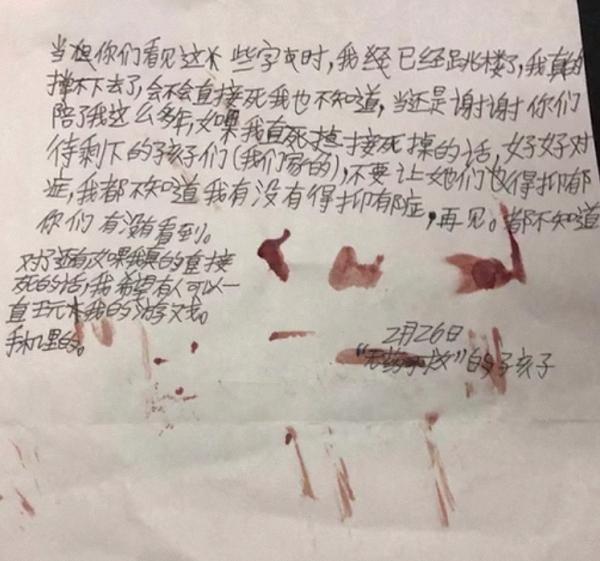 当 你们看见这 些字 时,我 已经跳楼了,我真的
撑不下去了,会不会直接死我也不知道,当还是谢谢你们
陪了我这么多年,如果我直 接死掉的话,好好对
待剩下的孩子们(我们家的),不要让她们也得抑郁
症,我都不知道我有没有得抑郁症,再见。都不知道
你们有没有看到。
对了还有如果我真的直接
死的话,我希望有人可以一
直玩 我的游戏。
手机里的。
2月26日
“ ”的 孩子